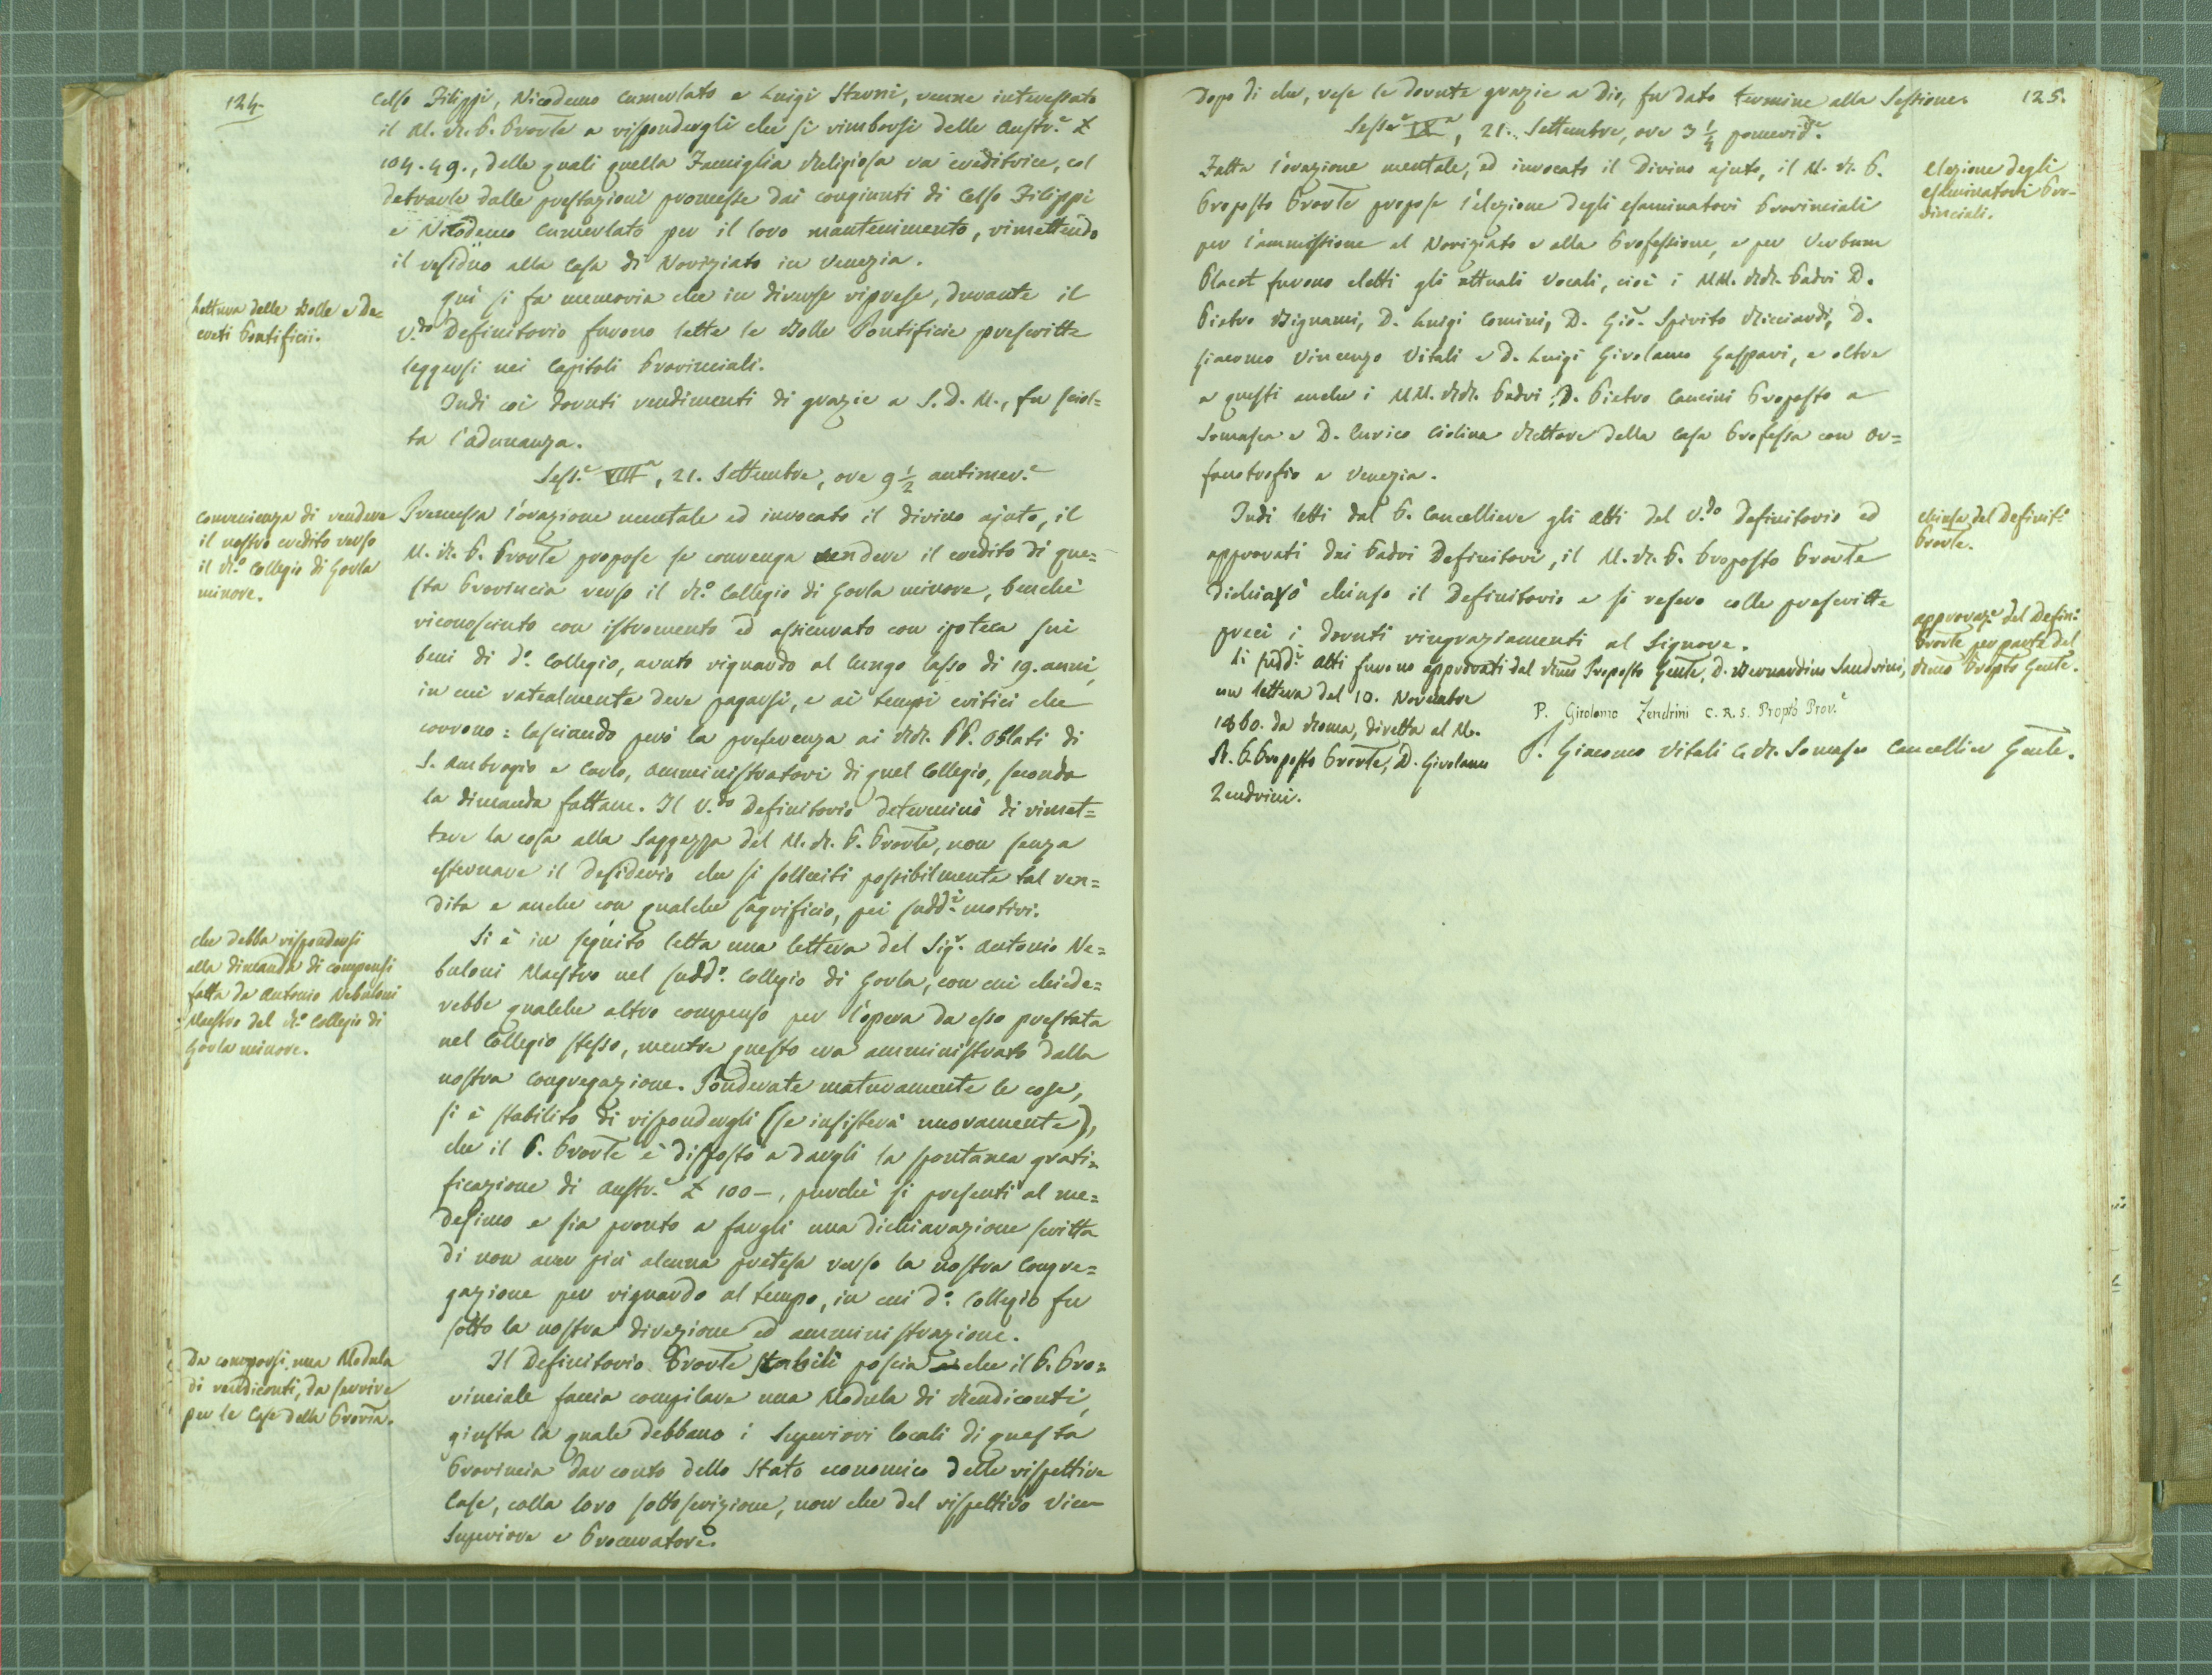 124.
Celso Filippi, Nicodemo Cumerlato e Luigi Sterni, venne interessato
il M. R. P. Prov̅le a rispondergli che si rimborsi delle Austr.e £
104.49., delle quali quella Famiglia Religiosa va creditrice, col
detrarle dalle prestazioni promesse dai congiunti di Celso Filippi
e Nicodemo Cumerlato per il loro mantenimento, rimettendo
il residuo alla Casa di Noviziato in Venezia.
Lettura delle Bolle e De=
creti Pontificii.
Qui si fa memoria che in diverse riprese, durante il
V.do Definitorio furono lette le Bolle Pontificie prescritte
leggersi nei Capitoli Provinciali.
Indi coi dovuti rendimenti di grazie a S. D. M., fu sciol=
ta l'adunanza.
Sess.e VIII.a, 21. Settembre, ore 9 1/2 antimer.e
Convenienza di vendere
il nostro credito verso
il R.o Collegio di Gorla
minore.
Premessa l'orazione mentale ed invocato il divino ajuto, il
M. R. P. Prov̅le propose se convenga vendere il credito di que=
sta Provincia verso il R.o Collegio di Gorla minore, benchè
riconosciuto con istromento ed assicurato con ipoteca sui
beni di d.o Collegio, avuto riguardo al lungo lasso di 19. anni,
in cui ratealmente deve pagarsi, e ai tempi critici che
corrono: lasciando però la preferenza ai RR. PP. Oblati di
S. Ambrogio e Carlo, amministratori di quel Collegio, secondo
la dimanda fattane. Il V.do Definitorio determinò di rimet=
tere la cosa alla saggezza del M. R. P. Prov̅le, non senza
esternare il desiderio che si solleciti possibilmente tal ven=
dita e anche con qualche sagrificio, pei sudd.i motivi.
Che debba rispondersi
alla dimanda di compensi
fatta da Antonio Nebuloni
Maestro del R.o Collegio di
Gorla minore.
Si è in seguito letta una lettera del Sig.r Antonio Ne=
buloni Maestro nel sudd.o Collegio di Gorla, con cui chiede=
rebbe qualche altro compenso per l'opera da esso prestata
nel Collegio stesso, mentre questo era amministrato dalla
nostra Congregazione. Ponderate maturamente le cose,
si è stabilito di rispondergli (se insisterà nuovamente),
che il P. Prov̅le è disposto a dargli la spontanea grati=
ficazione di Austr.e £ 100 –, purchè si presenti al me=
desimo e sia pronto a fargli una dichiarazione scritta
di non aver più alcuna pretesa verso la nostra Congre=
gazione per riguardo al tempo, in cui d.o Collegio fu
sotto la nostra direzione ed amministrazione.
Da comporsi una Modula
di rendiconti, da servire
per le Case della Prov̅ia.
Il Definitorio Prov̅le stabilì poscia che il P. Pro=
vinciale faccia compilare una Modula di Rendiconti,
giusta la quale debbano i Superiori locali di questa
Provincia dar conto dello Stato economico delle rispettive
Case, colla loro sottoscrizione, non che del rispettivo Vice
Superiore e Procuratore.
125.
Dopo di che, rese le dovute grazie a Dio, fu dato termine alla Sessione.
Sess.e IX.a, 21. Settembre, ore 3 1/4 pomerid.e
Elezione degli
esaminatori Pro=
vinciali.
Fatta l'orazione mentale, ed invocato il Divino ajuto, il M. R. P.
Proposto Prov̅le propose l'elezione degli esaminatori Provinciali
per l'ammissione al Noviziato e alla Professione, e per Verbum
Placet furono eletti gli attuali Vocali, cioè i MM. RR. Padri D.
Pietro Bignami, D. Luigi Comini, D. Gio. Spirito Ricciardi, D.
Giacomo Vincenzo Vitali e D. Luigi Girolamo Gaspari, e oltre
a questi anche i MM. RR. Padri D. Pietro Cancini Proposto a
Somasca e D. Enrico Ciolina Rettore della Casa Professa con Or=
fanotrofio a Venezia.
Chiusa del Definit.o
Prov̅le.
Indi letti dal P. Cancelliere gli Atti del V.do Definitorio ed
approvati dai Padri Definitori, il M. R. P. Proposto Prov̅le
dichiarò chiuso il Definitorio e si resero colle prescritte
preci i dovuti ringraziamenti al Signore.
Approvaz.e del Defin.o
Prov̅le per parte del
R̅mo Prop̅to Gen̅le.
Li sudd.i Atti furono approvati dal R̅mo Proposto Gen̅le, D. Bernardino Sandrini,
con lettera del 10. Novembre
1860. da Roma, diretta al M.
R. P. Proposto Prov̅le, D. Girolamo
Zendrini.
P. Girolamo Zendrini C. R. S. Prop̅to Prov.e
P. Giacomo Vitali C. R. Somasco Cancellier Gen̅le.